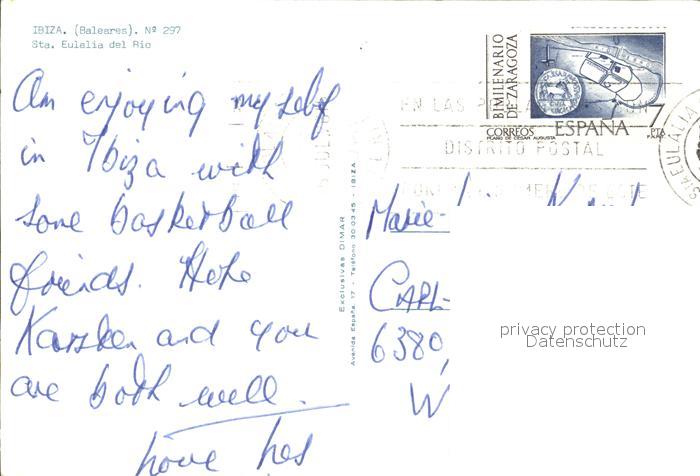 IBIZA. (Baleares). Nº 297
Sta. Eulalia del Rio
Am enjoying myself
in Ibiza with
some basketball
friends. Hope
Karsten and you
are both well.
Love
BIMILENARIO
DE ZARAGOZA
7
PTA
CORREOS ESPAÑA
PLANO DE CESAR AUGUSTA
EN LAS
DISTRITO POSTAL
STA EULALIA
Exclusivas DIMAR
Avenida España, 17 - Teléfono 30 03 45 - IBIZA
Marie-
CARL-
6380
W
privacy protection
Datenschutz